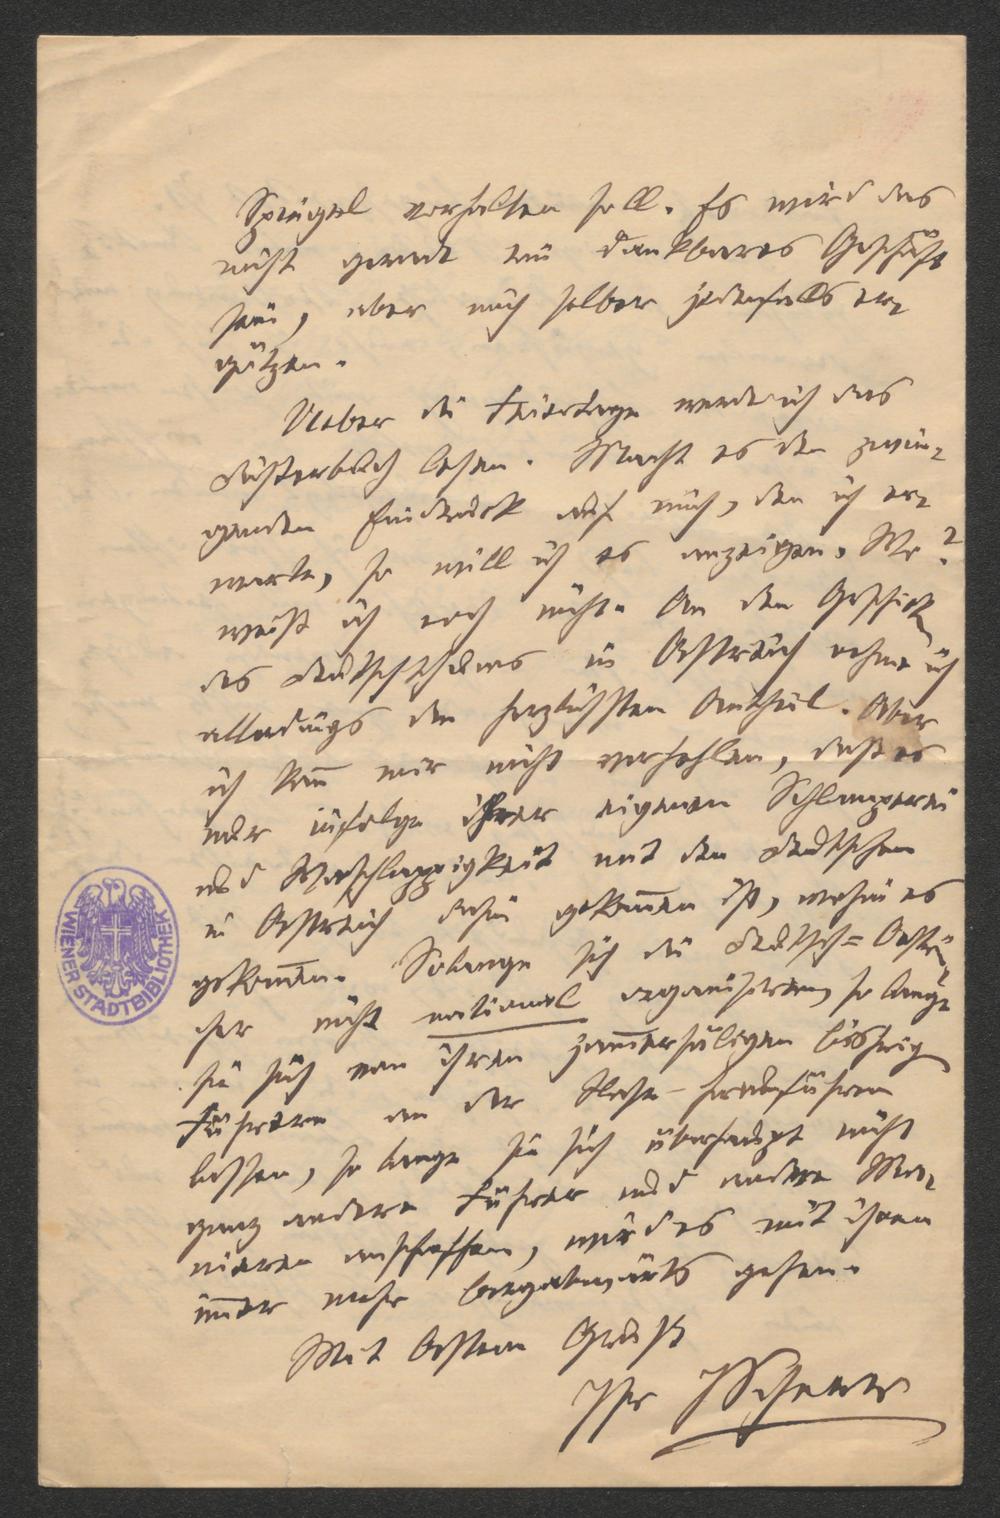 Spiegel vorhalten soll. Es wird das
nicht gerade ein dankbares Geschäft
sein, aber mich selber jedenfalls er-
götzen.
Ueber die Feiertage werde ich das
Düsterbuch lesen. Macht es den zwin-
genden Eindruck auf mich, den ich er-
warte, so will ich es anzeigen. Wo?
weiß ich noch nicht. An den Geschicken
des Deutschthums in Oestreich nehme ich
allerdings den herzlichsten Antheil. Aber
ich kann mir nicht verhehlen, daß es
nur infolge ihrer eigenen Schlamperei
und Waschlappigkeit mit den Deutschen
in Oestreich dahin gekommen ist, wohin es
gekommen. Solange sich die Deutsch=Oestrei-
cher nicht national organisiren, so lange
sie sich von ihren jammerseligen bisherigen
Führern an der Nase herumführen
lassen, so lange sie sich überhaupt nicht
ganz andere Führer und andere Ma-
nieren anschaffen, wird es mit ihnen
immer mehr bergabwärts gehen.
Mit bestem Gruß
Ihr JScherr
WIENER STADTBIBLIOTHEK